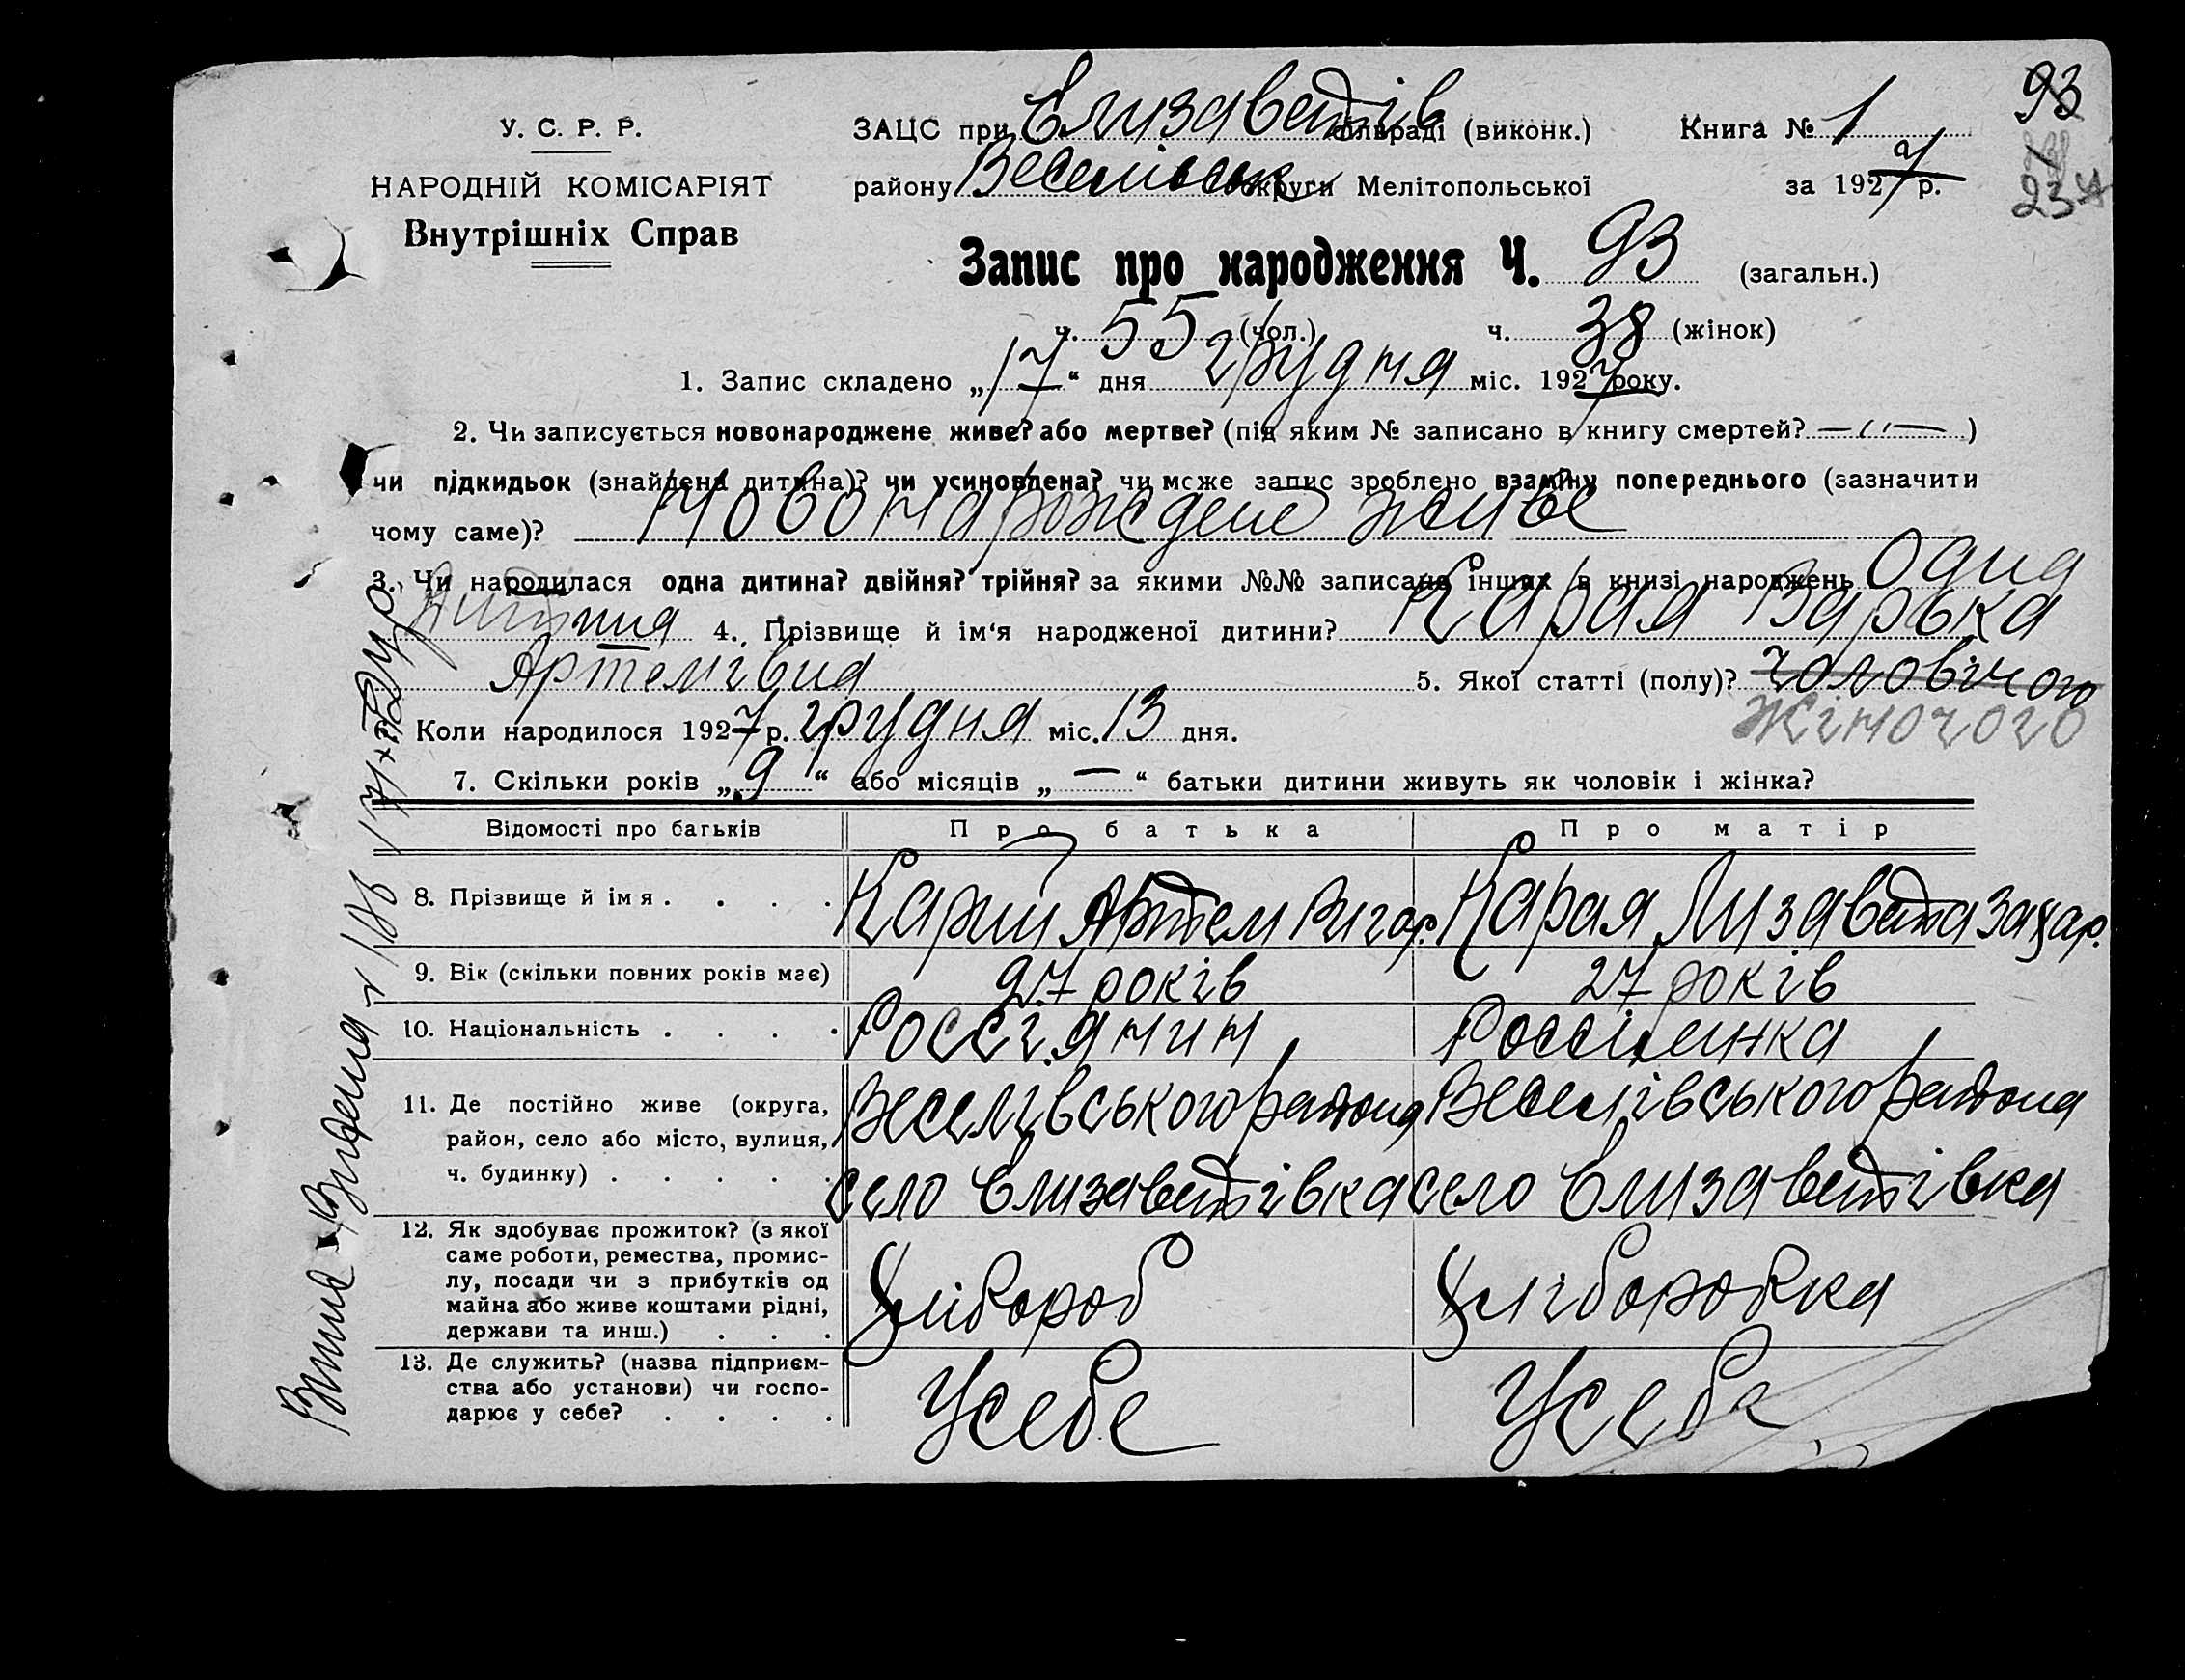 93
У. С. Р. Р.
НАРОДНІЙ КОМІСАРІЯТ
Внутрішніх Справ
ЗАЦС при Єлизаветів сільраді (виконк.)
Книга № 1
району Веселівськ округи Мелітопольської
за 1927 р.
234
Запис про народження Ч. 93 (загальн.)
ч. 55 (чол.) ч. 38 (жінок)
1. Запис складено „17“ дня грудня міс. 1927 року.
2. Чи записується новонароджене живе? або мертве? (під яким № записано в книгу смертей? —〃— )
чи підкидьок (знайдена дитина)? чи усиновлена? чи може запис зроблено взаміну попереднього (зазначити
чому саме)? Новонарождене живе
3. Чи народилася одна дитина? двійня? трійня? за якими №№ записано інших в книзі народжень Одна
Дитина 4. Прізвище й ім‘я народженої дитини? Карая Варька
Артемівна 5. Якої статті (полу)? чоловічого
жіночого
Коли народилося 1927 р. грудня міс. 13 дня.
7. Скільки років „9“ або місяців „—“ батьки дитини живуть як чоловік і жінка?
Відомості про батьків Про батька Про матір
8. Прізвище й імя . . . . Карий Артем Карая Лизавета Захар.
9. Вік (скільки повних років має) 27 років 27 років
10. Національність . . . . Россіянин Россіянка
11. Де постійно живе (округа, район, село або місто, вулиця, ч. будинку) . . . . . Веселівського района село Єлизаветівка Веселівського района село Єлизаветівка
12. Як здобуває прожиток? (з якої саме роботи, ремества, промислу, посади чи з прибутків од майна або живе коштами рідні, держави та инш.) . . . Хлібороб Хліборобка
13. Де служить? (назва підприємства або установи) чи господарює у себе? . . . . Усебе Усебе